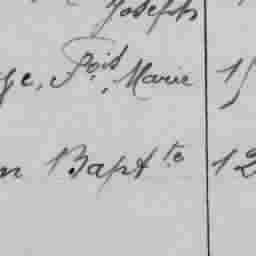 Joseph
ge, Fois, Marie 15
n Bapt te 12